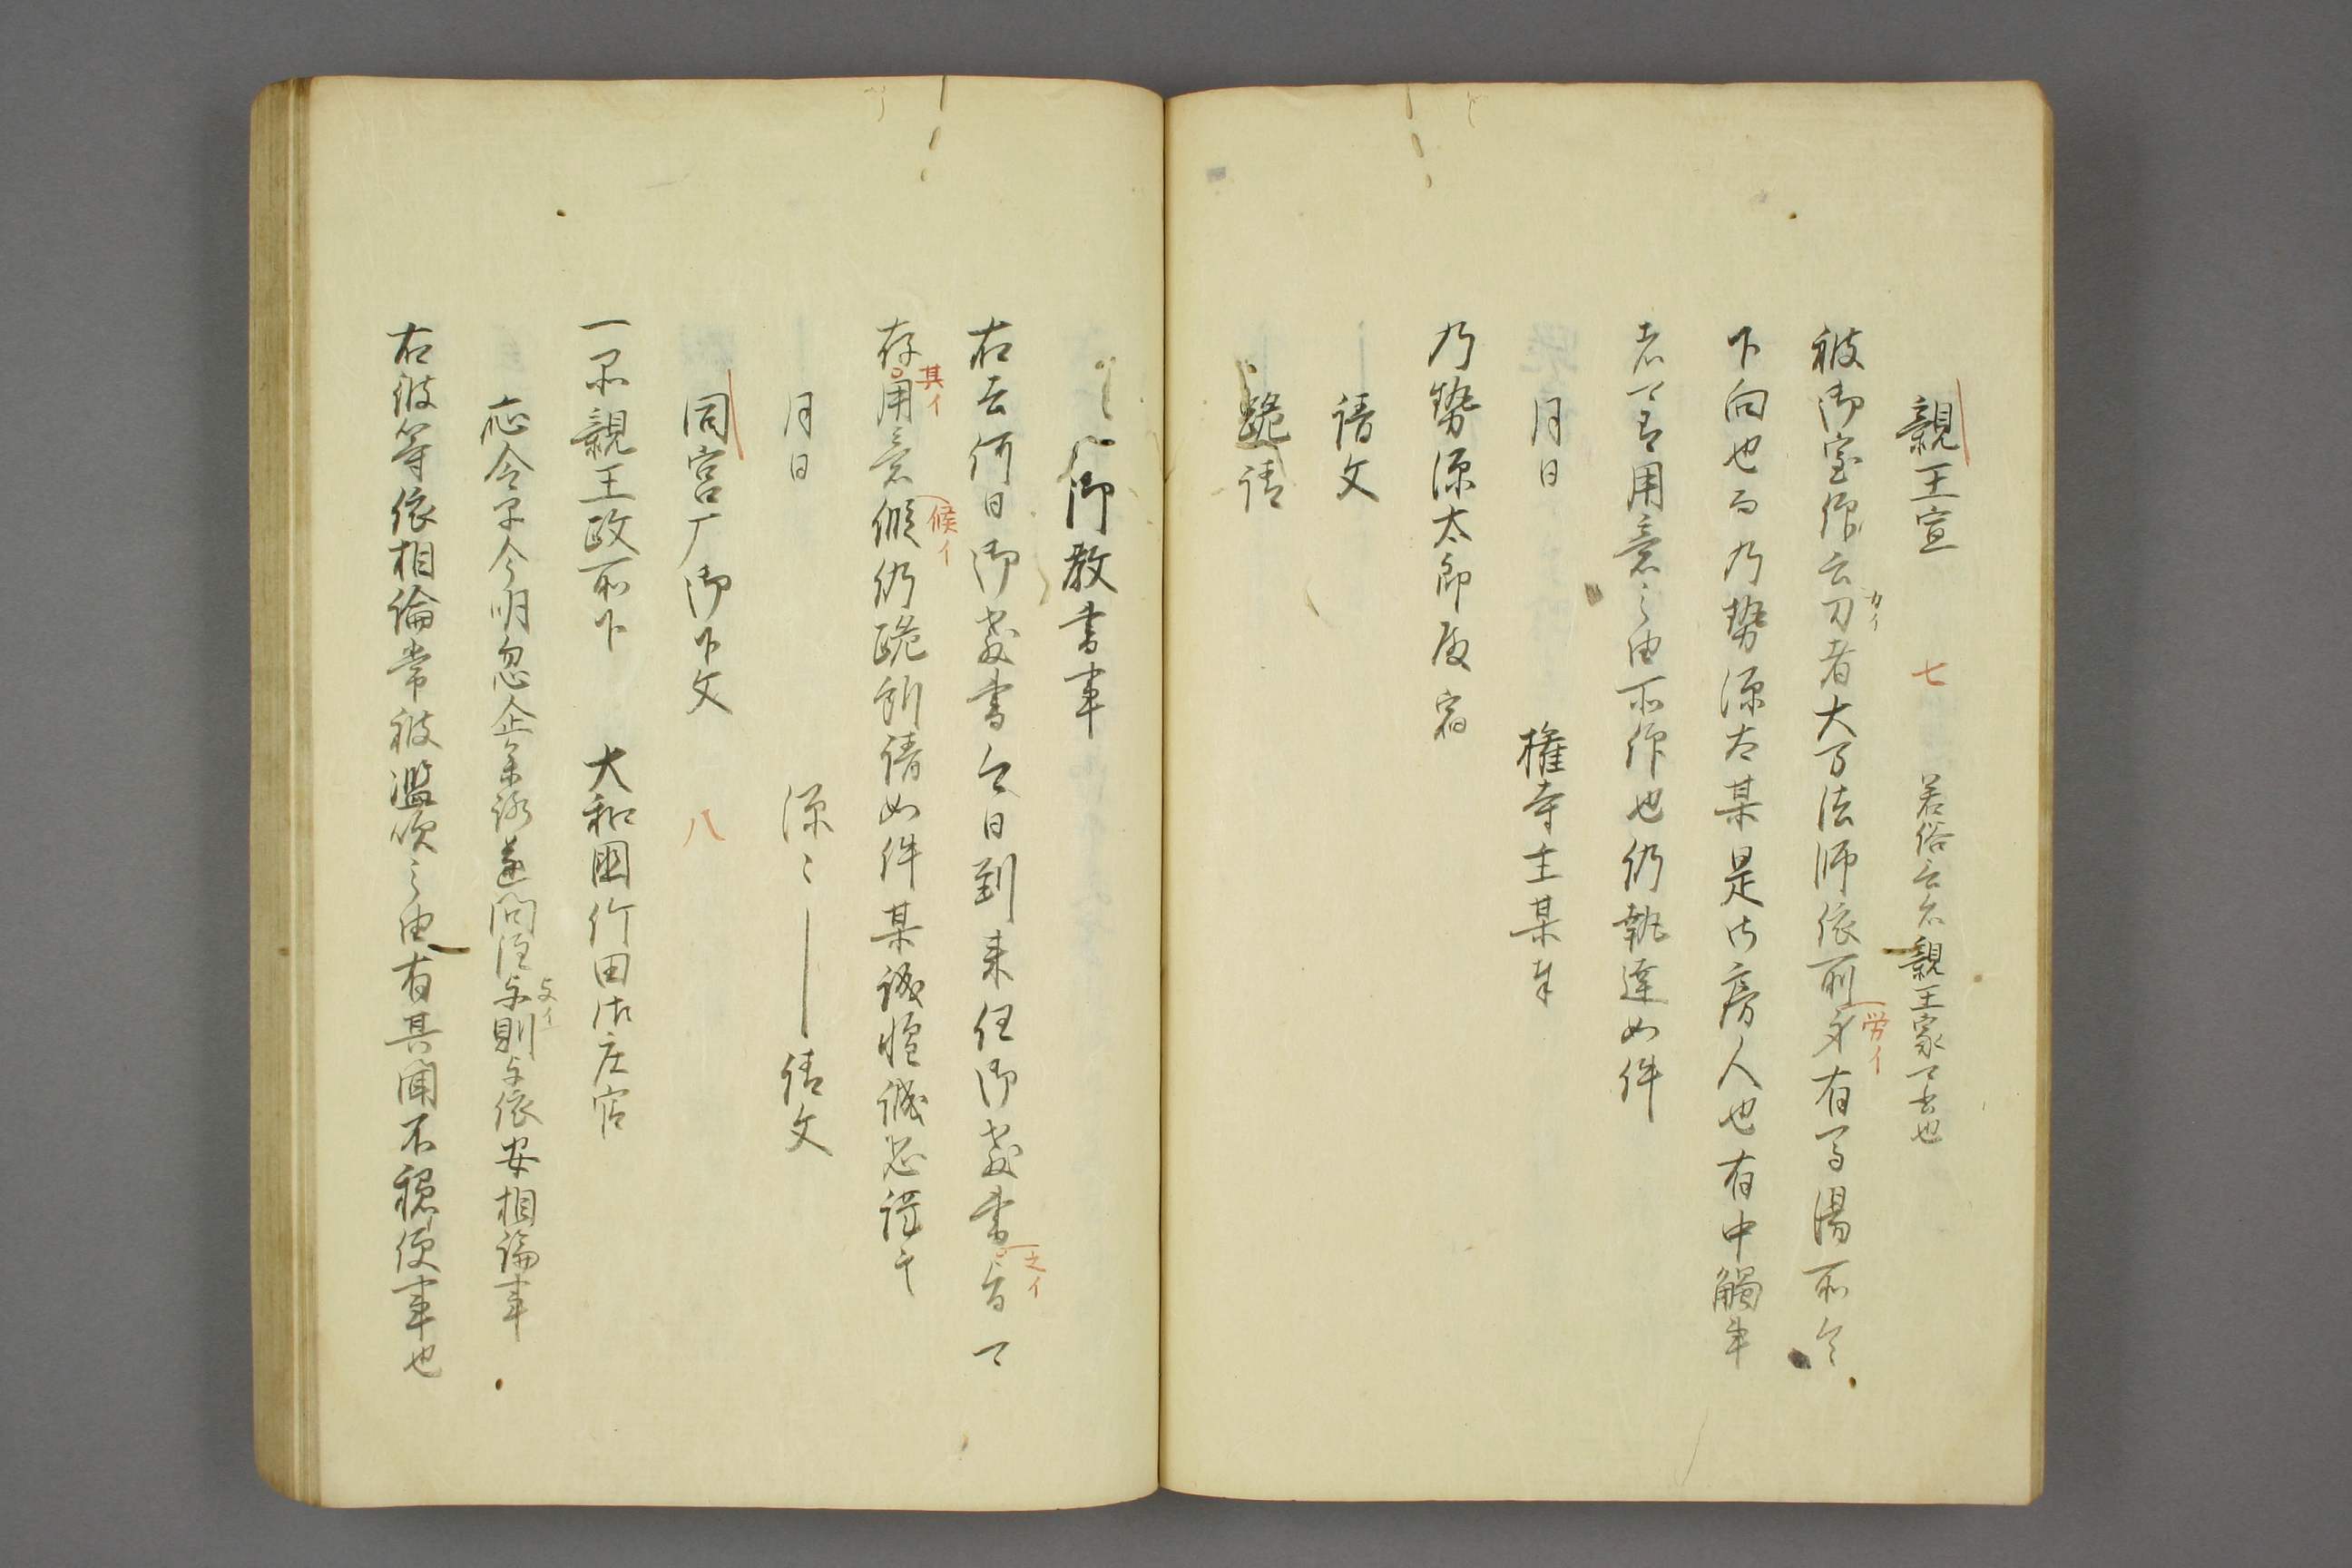 親王宣 七 若俗云々親王家可書也
被御室仰云刀者大万法師依所身有馬湯所令
カイ
労イ
下向也而乃勢源太某是御房人也有申觸事
者可有用意之由所仰也仍執達如件
月日 権寺主某奉
乃勢源太郎殿宿
請文
跪請
御教書事
右去何日御教書今日到来任御教書旨可
之イ
存用意候仍跪所請如件某誠惶誠恐謹言
其イ
候イ
月日 源〻 請文
同宮庁御下文 八
一品親王政所下 大和国竹田御庄官
応令早今明忽企参洛遂問注与則与依安相論事
与イ
右彼等依相論常被濫吹之由有其聞不穏便事也